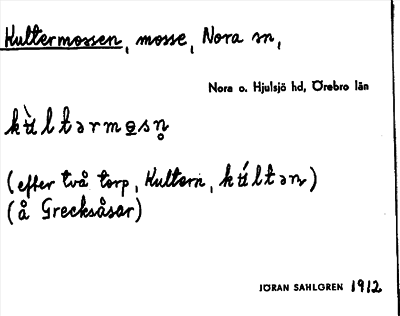 Kultermossen, mosse, Nora sn,
Nora o. Hjulsjö hd, Örebro län
kù̵ltərmo̲sn̥
(efter två torp, Kultern, kú̵ltən)
(å Grecksåsar)
JÖRAN SAHLGREN 1912